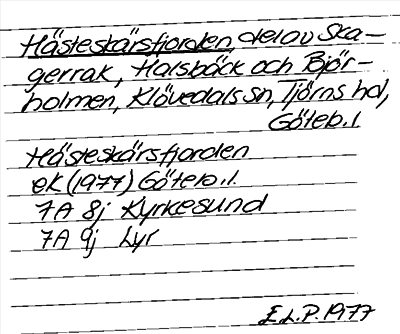 Hästeskärsfjorden, del av Ska-
gerrak, Halsbäck och Björ-
holmen, Klövedals sn, Tjörns hd,
Göteb. l.
Hästeskärsfjorden
ek (1977) Göteb. l.
7A 8j Kyrkesund
7A 9j Lyr
E.L.P. 1977